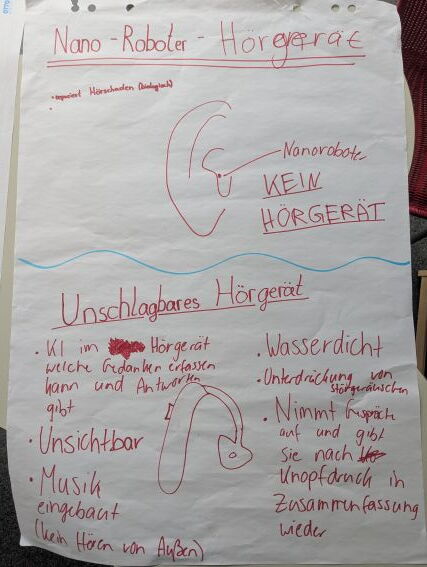 Nano-Roboter-Hörgerät
• repariert Hörschaden (biologisch)
•
Nanoroboter
KEIN
HÖRGERÄT
Unschlagbares Hörgerät
• KI im Hörgerät
welche Gedanken erfassen
kann und Antworten
gibt
• Unsichtbar
• Musik
eingebaut
(kein Hören von Außen)
• Wasserdicht
• Unterdrückung von
Störgeräuschen
• Nimmt Gespräche
auf und gibt
sie nach
Knopfdruck in
Zusammenfassung
wieder